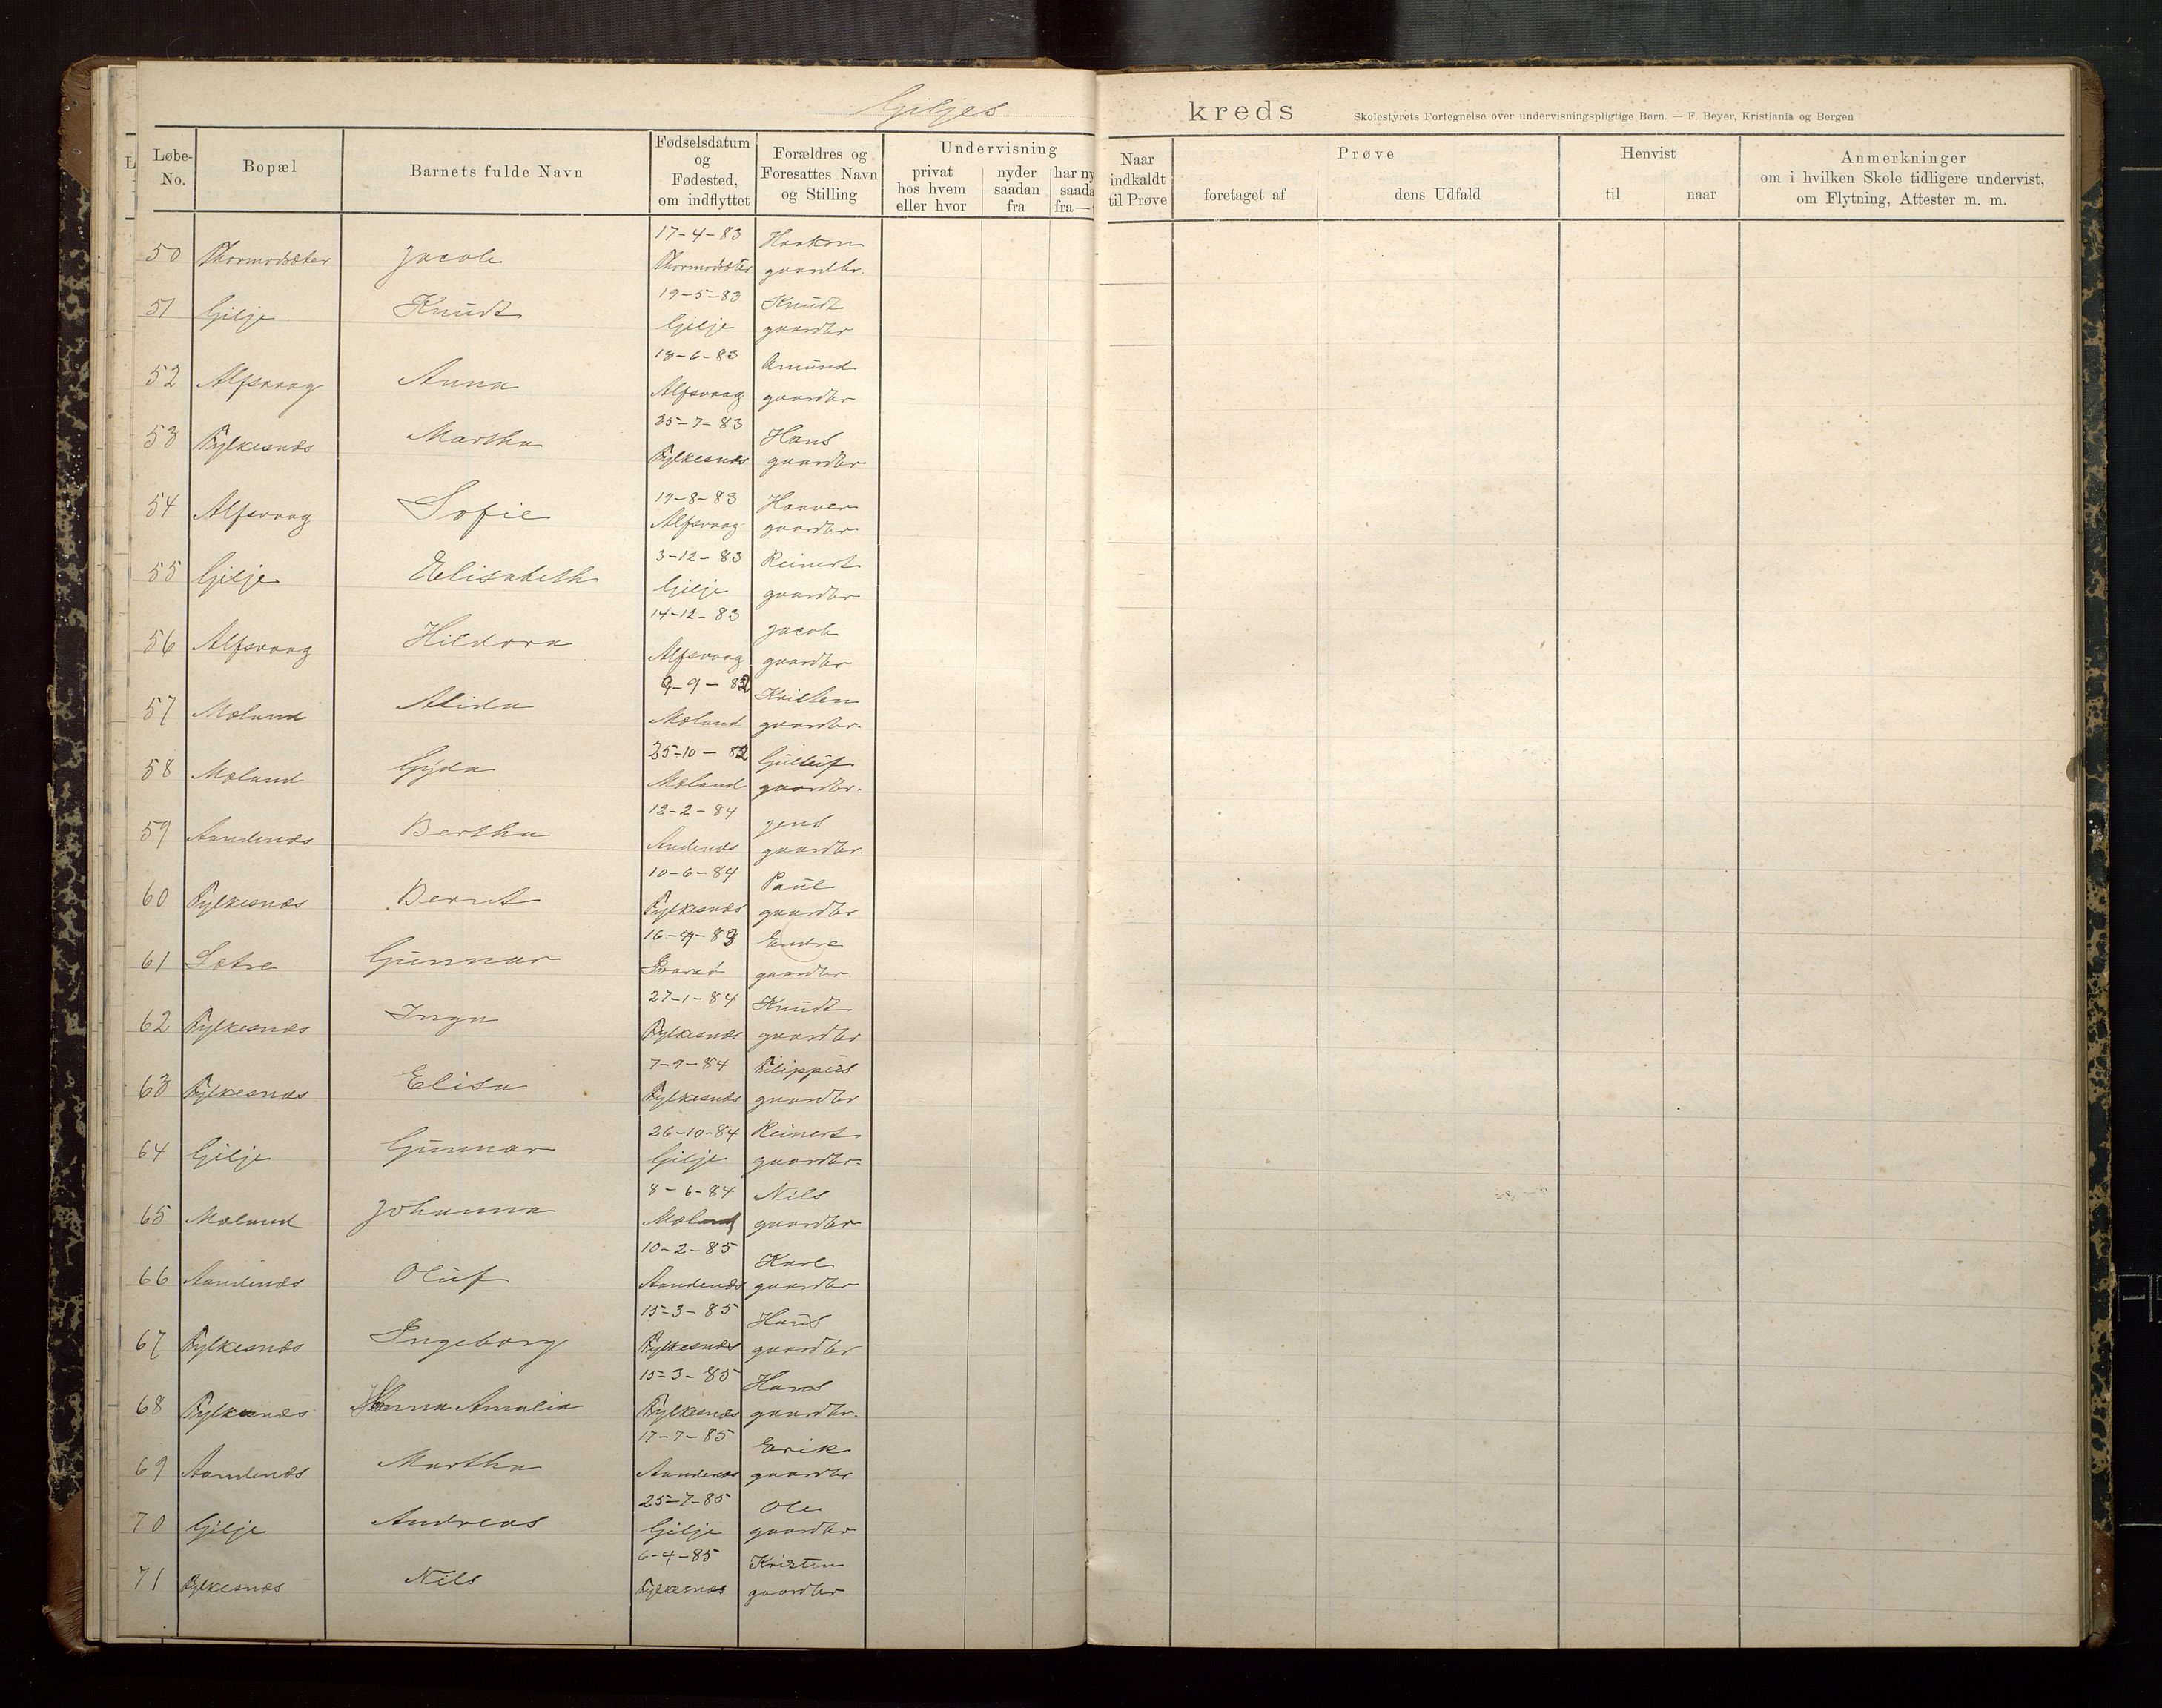 Giljes kreds
Skolestyrets Fortegnelse over undervisningspligtige Børn. — F. Beyer, Kristiania og Bergen
Løbe-No. Bopæl Barnets fulde Navn Fødselsdatum og Fødested, om indflyttet Forældres og Foresattes Navn og Stilling Undervisning privat hos hvem eller hvor nyder saadan fra har ny saada fra—
Naar indkaldt til Prøve Prøve foretaget af dens Udfald Henvist til naar Anmerkninger om i hvilken Skole tidligere undervist, om Flytning, Attester m. m.
50 Thormodsæter Jacob 17-4-83 Thormodsæter Haakon gaardbr.
51 Gilje Knudt 19-5-83 Gilje Knudt gaardbr
52 Alfsvaag Anna 19-6-83 Alfsvaag Amund gaardbr
53 Fylkesnæs Martha 25-7-83 Fylkesnæs Hans gaardbr
54 Alfsvaag Sofie 19-8-83 Alfsvaag Haaver gaardbr
55 Gilje Elisabeth 3-12-83 Gilje Reinert gaardbr
56 Alfsvaag Hildora 14-12-83 Alfsvaag Jacob gaardbr
57 Mæland Alida 9-9-82 Mæland gaardbr.
58 Mæland Gyda 25-10-82 Mæland Gulleif gaardbr.
59 Aandenæs Bertha 12-2-84 Andenæs Jens gaardbr.
60 Fylkesnæs Bernt 10-6-84 Fylkesnæs Paul gaardbr
61 Sætre Gunnar 16-9-83 Endre gaardbr.
62 Fylkesnæs Inga 27-1-84 Fylkesnæs Knudt gaardbr
63 Fylkesnæs Elisa 7-9-84 Fylkesnæs Filippus gaardbr
64 Gilje Gunnar 26-10-84 Gilje Reinert gaardbr.
65 Mæland Johanna 8-6-84 Mæland Nils gaardbr
66 Aandenæs Oluf 10-2-85 Aandenæs Karl gaardbr
67 Fylkesnæs Ingeborg 15-3-85 Fylkesnæs Hans gaardbr
68 Fylkesnæs Anna Amalia 15-3-85 Fylkesnæs Hans gaardbr.
69 Aandenæs Martha 17-7-85 Aandenæs Erik gaardbr
70 Gilje Andreas 25-7-85 Gilje Ole gaardbr
71 Fylkesnæs Nils 6-4-85 Fylkesnæs Kristen gaardbr